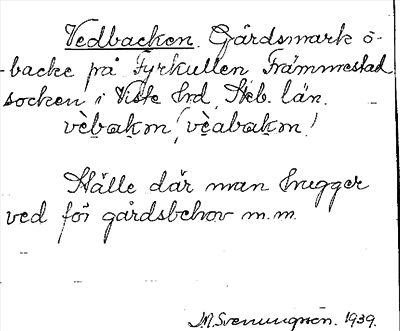 Vedbacken. Gårdsmark o-
-backe på Fyrkullen, Främmestad
socken i Viste Hrd, Skb. län.
vèbakm (vèabakm)
Ställe där man hugger
ved för gårdsbehov m.m.
Svenungson. 1939.